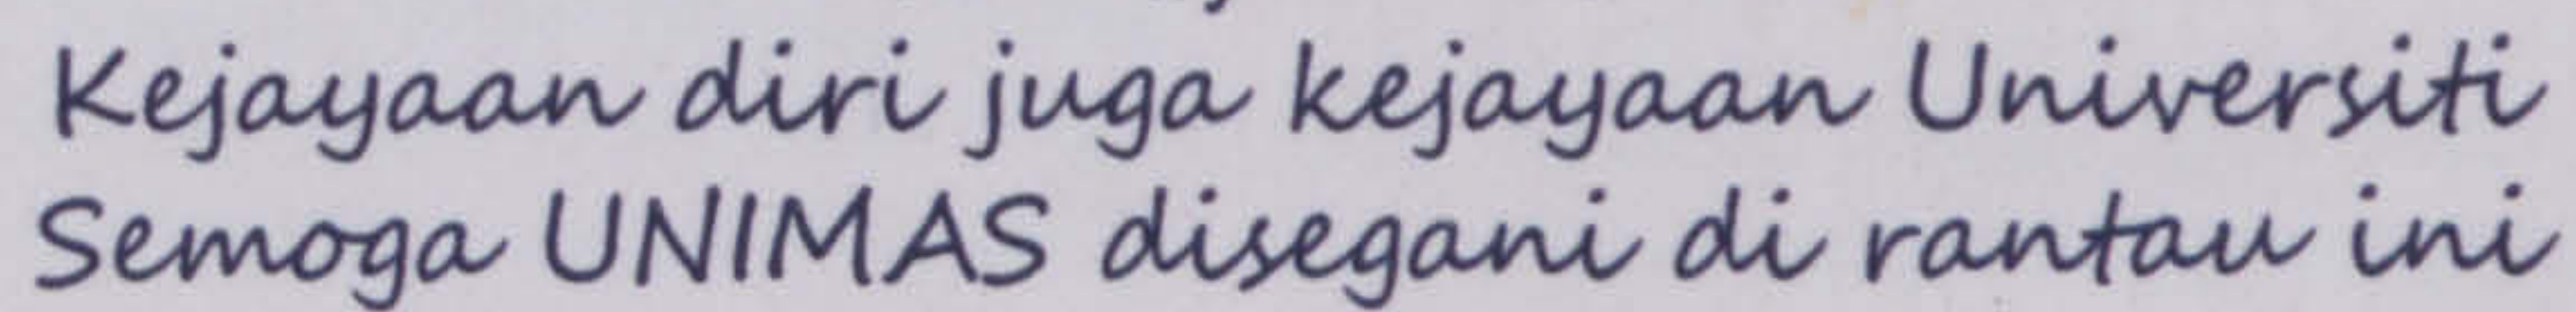 Kejayaan diri juga kejayaan Universiti
Semoga UNIMAS disegani di rantau ini